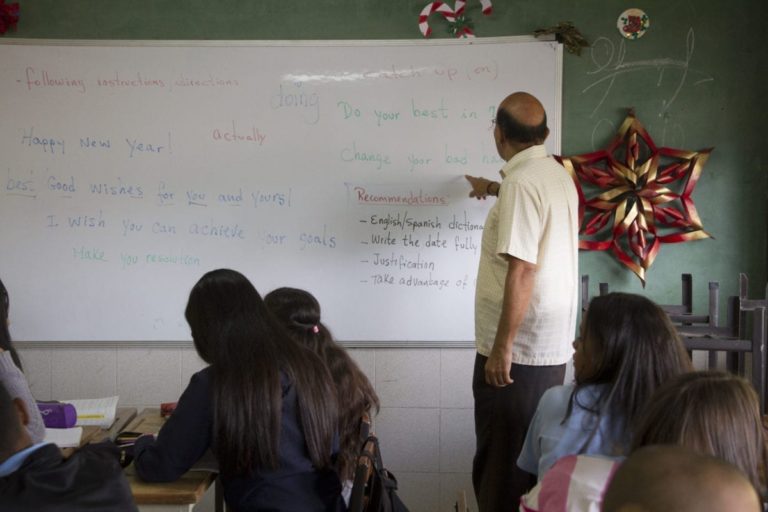 - following instructions, directions
catch up (on)
doing
Do your best in
actually
Happy New Year!
Change your bad
best Good wishes for you and yours!
Recommendations:
I wish you can achieve your goals
- English/Spanish
- Write the date fully
Make you resolution
- Justification
- Take advantage of